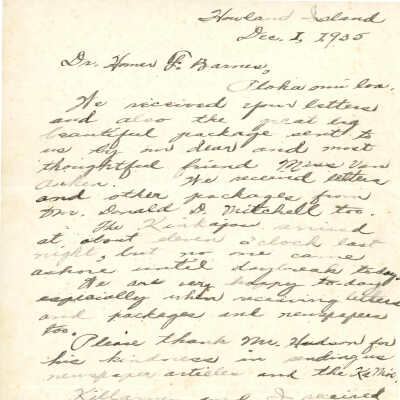 Howland Island
Dec. 1, 1935
Dr. Homer F. Barnes,
Aloha nui loa.
We received your letters
and also the great big
beautiful package sent to
us by our dear and most
thoughtful friend Miss Van
Anken. We received letters
and other packages from
Mr. Donald D. Mitchell too.
The Kinkajou arrived
at about eleven o'clock last
night, but no one came
ashore until daybreak today.
We are very happy to-day
especially when receiving letters
and packages and newspapers
too.
Please thank Mr. Hudson for
his kindness in sending us
newspaper articles and the
Killarney and I received